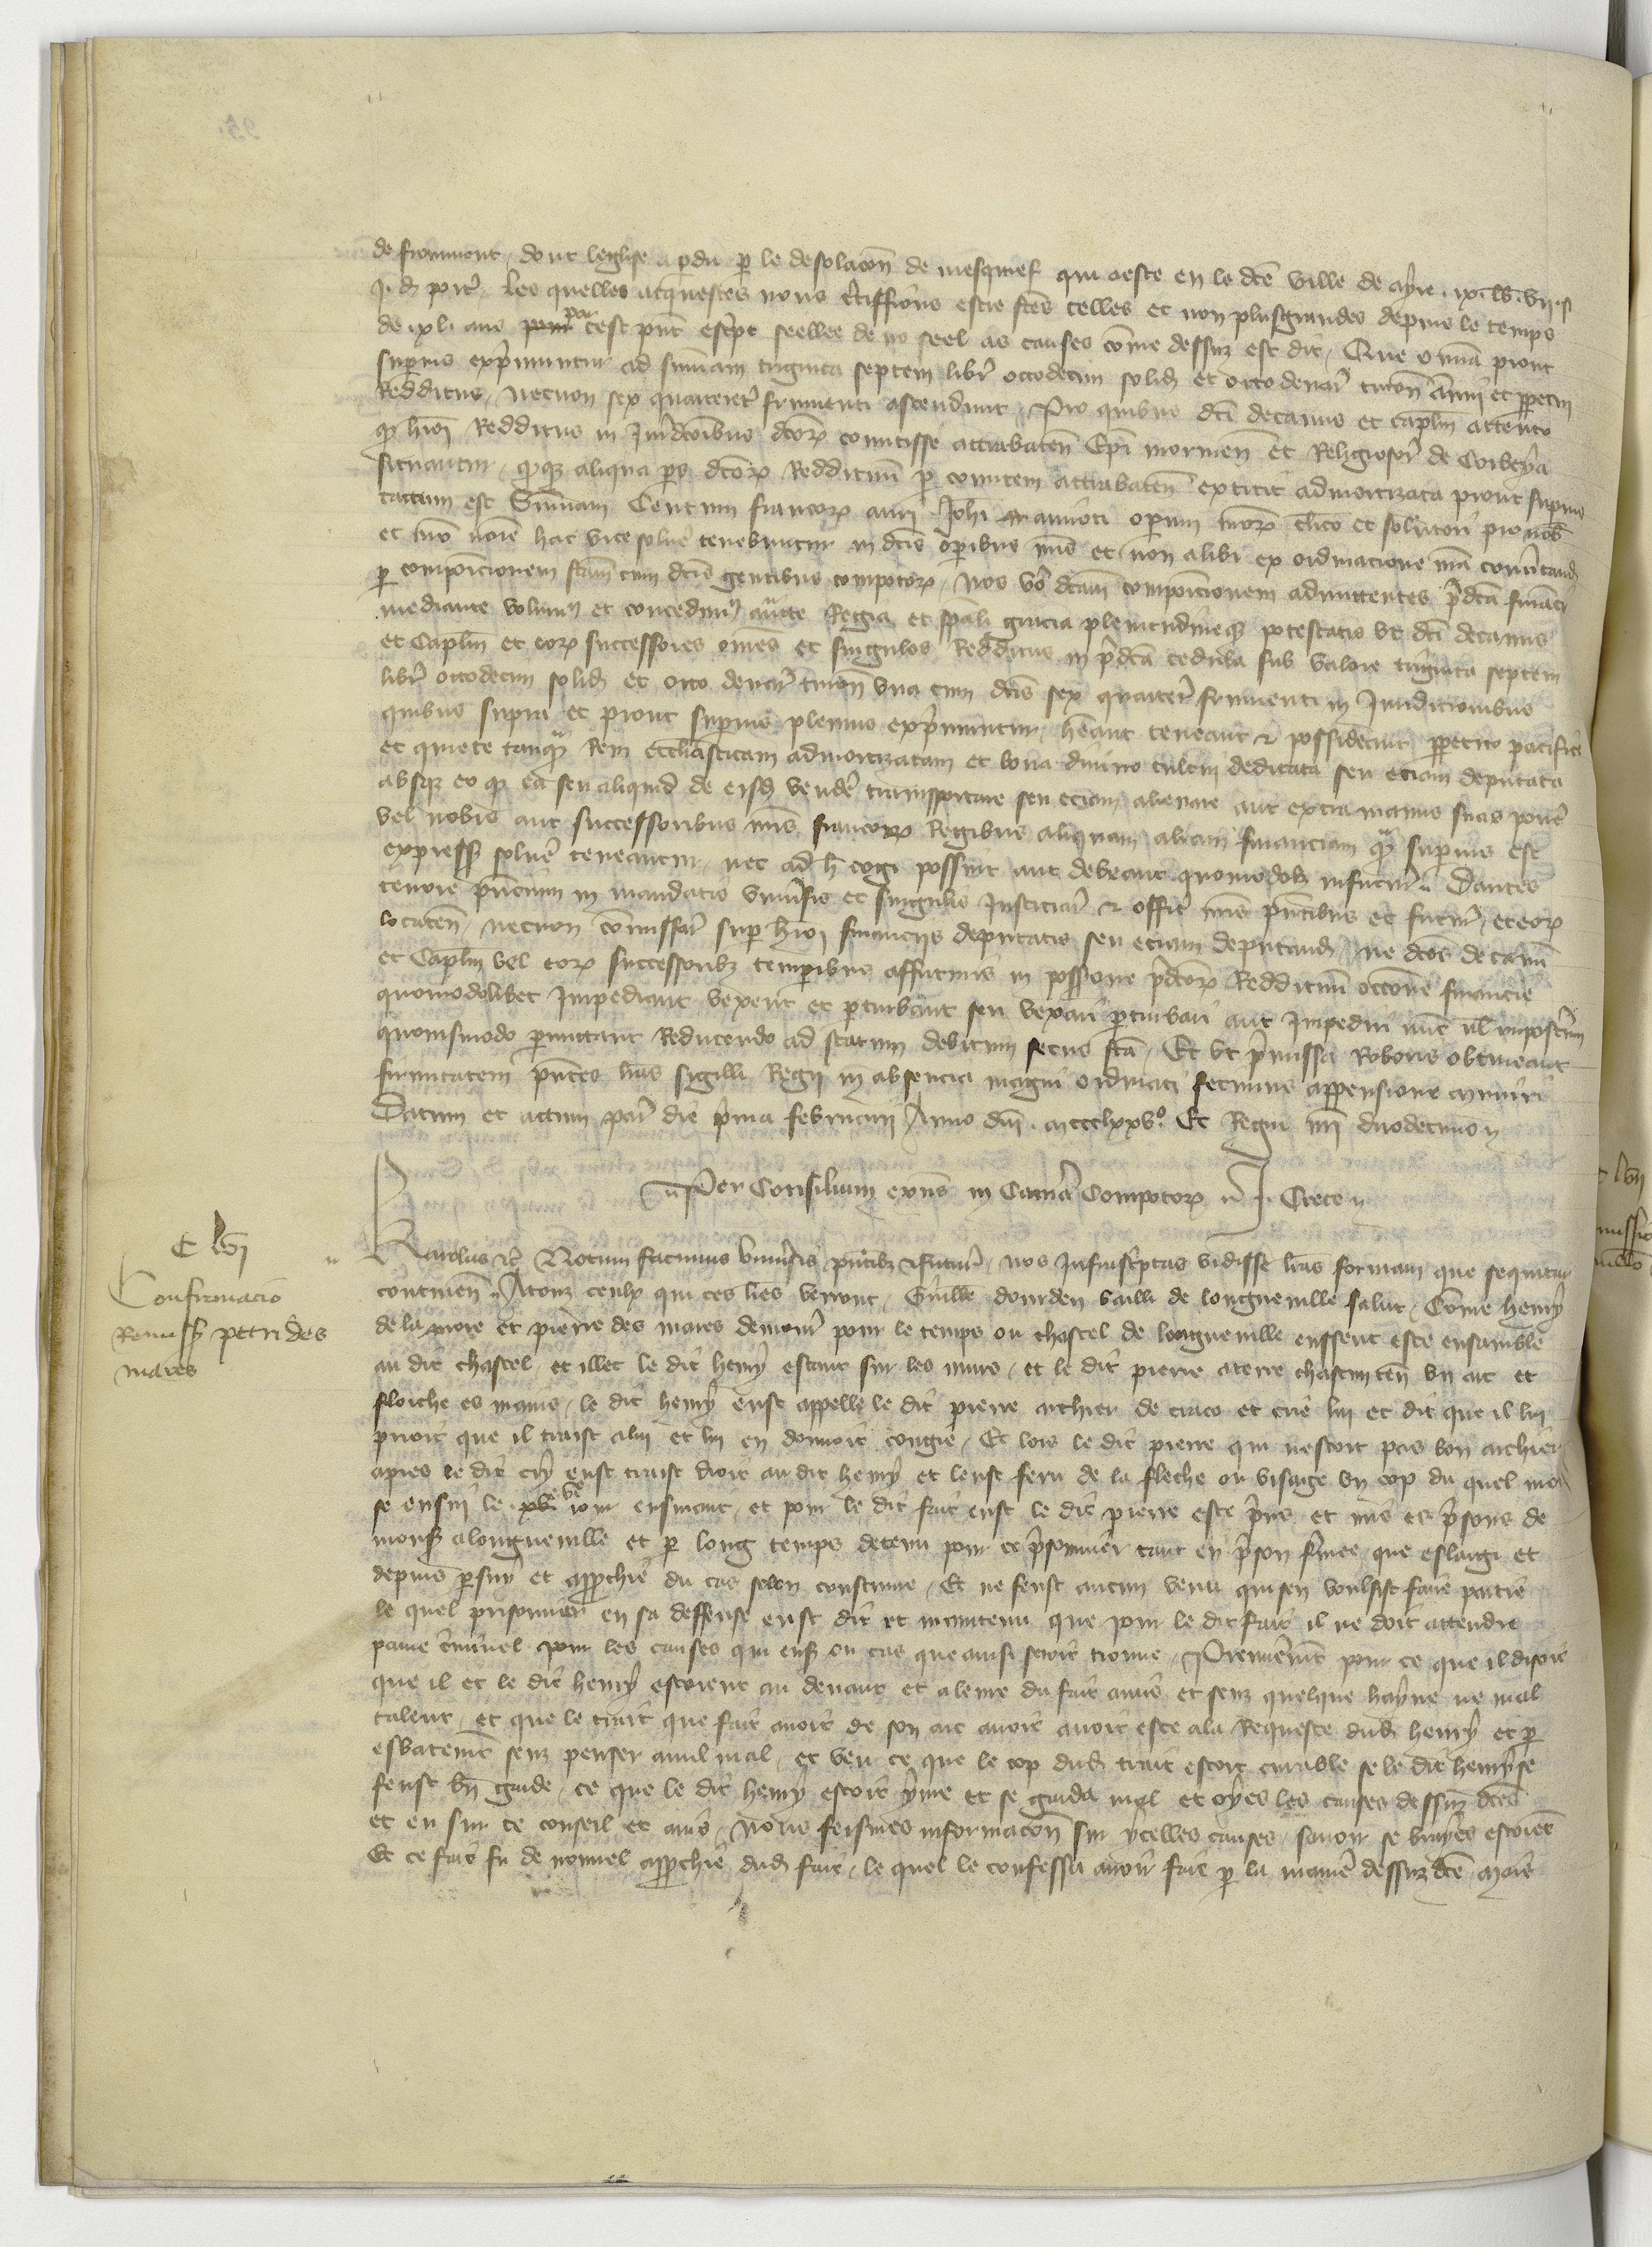 de froument, dont leglise a pdu p le desolacōn de mesquief qui a este en le dcē ville de ayre . ix. lb. vii. s
Les quelles acquestes nous c̄tiffions estre fc̄es telles et non plus grandes depuis le temps
de xl. ans par cest pn̄t esc̄pt seellee de no seel as causes cōme dessuz est dit, Que om̄ia prout
superius exp̄muntur ad sum̄am triginta septem libr̄ octodecim solid̄ et octo denar̄ turon̄ annui et p̄petui
Redditus, necnon sex quarter̄ frumenti ascendunt, Pro quibus dc̄i decanus et caplm̄ attento
q̄ hm̄oi Redditus in Jur̄dc̄oibus dc̄or̄ comitisse attrabaten̄ Ep̄i morinen̄ et Religiosor̄ de Corbeya
situantur, q̄q̄ aliqua ps dc̄or̄ Reddituum p comitem attrabaten̄ extitit admortizata prout supius
tactum est Sum̄am Centum francor̄ auri Joh̄i amioti operum nr̄or̄ cl̄ico et solutori pro nob̄
et nr̄o noīe hac vice solue tenebuntur in dc̄is opibus nr̄is et non alibi ex ordinacione nr̄a conu̅tend̄
p composicionem fc̄am cum dc̄is gentibus compotor̄, Nos vo dc̄am composicionem admittentes p̄dc̄a finācia
mediante volumus et concedimus auct̄e Regia et sp̄ali gracia plenitudineq̄ potestatis vt dc̄i decanus
et Caplm̄ et eor̄ successores om̄es et singulos Redditus in p̄dc̄a cedula sub valore triginta septem
libr̄ octodecim solid̄ et octo denar̄ turon̄ vna cum dc̄is sex quarter̄ frumenti in Juridicionibus
quibus supra et prout superius plenius exp̄muntur, hēant teneant & possideant p̄petuo pacifice
et quiete tanq̄ Rem eccl̄iasticam admortizatam et bona diuino cultui dedicata seu eciam deputata
absq̄ eo q̄ ea seu aliquid de eisd̄ vender̄ transportare seu eciam alienare aut extra manus suas poner̄
vel nobis aut successoribus nr̄is francor̄ Regibus aliquam aliam financiam q̄ superius est
express̄ soluer̄ teneantur, nec ad h̄ cogi possint aut debeant quomodol̄z infutur̄. Dantes
tenore pn̄cium in mandatis vniu̅sis et singulis Justiciar̄ & offic̄ nr̄is pn̄tibus et futur̄, et eor̄
locaten̄, necnon com̄issar̄ sup hm̄oi financiis deputatis seu eciam deputand̄, ne dc̄os decanū
et Caplm̄ vel eor̄ successorib̄ tempibus affuturis in poss̄ione p̄dc̄or̄ Reddituum occ̄one financie
quomodolibet Impediant vexent et p̄turbent seu vexari p̄turbari aut Impediri nunc uel Imposter̄um
quouismodo p̄mittant Reducendo ad statum debitum secus fc̄a, Et vt p̄missa Roboris obtineant
firmitatem pn̄tes lr̄as sigilli Regii in absencia magni ordinati fecimus appensione muniri
Datum et actum par̄ die p̄ma februarii Anno dn̄i . mccclxxvo. Et Regni nr̄i duodecimo
Per Consilium exn̄s in Camera Compotor̄ J. Crece
C lvi
Confirmacio
Remiss̄ petri des
mares
Karolus &c̄ Notum facimus vniu̅sis pn̄tib̄ & futur̄, nos Infrasc̄ptas vidisse lr̄as formam que sequitur
continen̄. A tous ceulx qui ces lr̄es verront, Guill̄e dourden bailli de longueuille salut, Cōme henry
de la more et pierre des mares demour̄ pour le temps ou chastel de longueuille eussent este ensamble
au dit chastel, et illec le dit henry estant sur les murs, et le dit pierre a terre chascun ten̄ vn arc et
floiche es mains, le dit henry eust appelle le dit pierre archier de craco et crie lui et dit que il lui
prioit que il traist a lui et lui en donnoit congie, Et lors le dit pierre qui nestoit pas bon archier
apres le dit cry eust traist droit au dit henry et leust feru de la fleche ou visage vn cop du quel mort
se ensui le xve iour ensuiant, et pour le dit fait eust le dit pierre este p̄ns et mis es p̄sons de
mons̄ a longueuille et p long temps detenu pour ce p̄sonnier tant en p̄son f̄mee que eslargi et
depuis p̄suy et approchie du cas selon coustume, Et ne feust aucun venu qui sen voulsist faire partie
le quel prisonnier en sa deffense eust dit et maintenu que pour le dit fait il ne doit attendre
paine c̄minel pour les causes qui ens̄ ou cas que ainsi seroit trouue, Premierem̄t pour ce que il disoit
que il et le dit henry estoient au deuant et a leure du fait amis et senz quelque hayne ne mal
talent, et que le trait que fait auoit de son arc auoit este a la Requeste dud̄ henry et p
esbatem̄t senz penser a nul mal, et veu ce que le cop dud̄ trait estoit curable se le dit henry se
feust bn̄ garde, ce que le dit henry estoit yure et se garda mal et oyes les causes dessuz dc̄es
et eu sur ce conseil et auis, Nous feismes informacōn sur ycelles causes sauoir se vrayes estoiēt
Et ce fait fu de nouuel approchie dud̄ fait, le quel le confessa auoir fait p la manie dessuz dc̄e